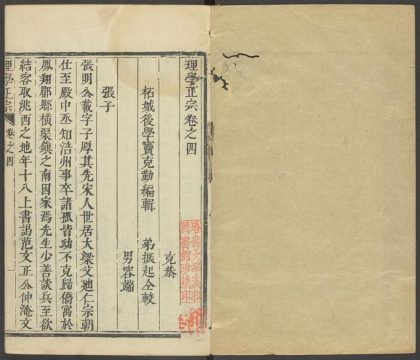 理學正宗卷之四
柘城後學竇克勤編輯
克恭
弟振起仝較
男容端
張子
張明公載字子厚其先宋人世居大梁父廸仁宗朝
仕至殿中丞知涪州事卒諸孤皆幼不克歸僑寓於
鳳翔郿縣橫渠鎮之南因家焉先生少喜談兵至欲
結客取洮西之地年十八上書謁范文正公仲淹文
理學正宗
卷之四
一